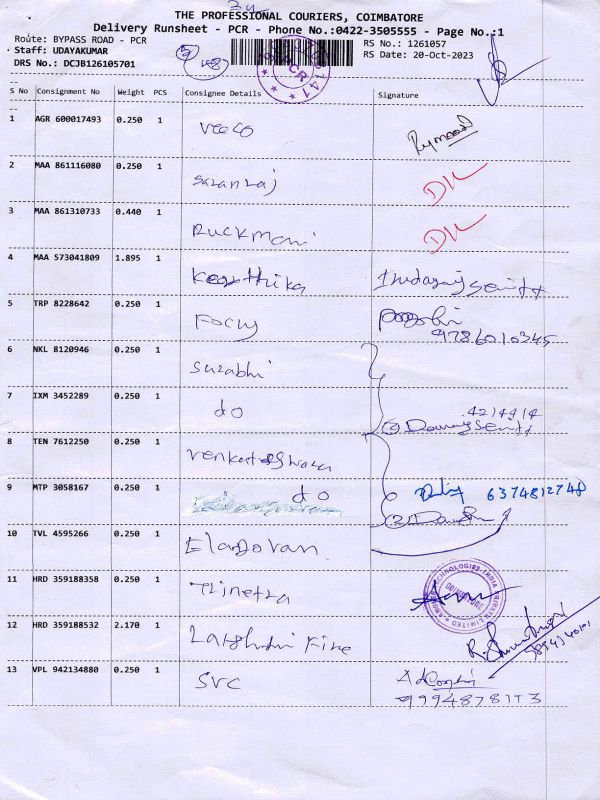 THE PROFESSIONAL COURIERS, COIMBATORE
Delivery Runsheet - PCR - Phone No.:0422-3505555 - Page No.:1
Route: BYPASS ROAD - PCR
Staff: UDAYAKUMAR
DRS No.: DCJB126105701
RS No.: 1261057
RS Date: 20-Oct-2023
S No Consignment No Weight PCS Consignee Details Signature
1 AGR 600017493 0.250 1 veeco
2 MAA 861116080 0.250 1 Saranraj
3 MAA 861310733 0.440 1 Ruckmani
4 MAA 573041809 1.895 1 Keerthika
5 TRP 8228642 0.250 1 Focus
9786010345
6 NKL 8120946 0.250 1 Surabhi
7 IXM 3452289 0.250 1 do
8 TEN 7612250 0.250 1 Venkateshwara
9 MTP 3058167 0.250 1 do 6374812748
10 TVL 4595266 0.250 1 Elangovan
11 HRD 359188358 0.250 1 Trinetra
12 HRD 359188532 2.170 1 Lakshmi Fire
13 VPL 942134880 0.250 1 SVC